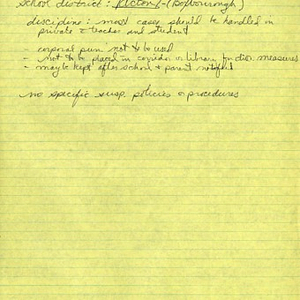 School district: Acton-(Boxborough)
discipline: most cases should be handled in
private c teacher and student
- corporal pun. not to be used
- not to be placed in corridor or library for disc. measures
- may be kept after school & parent notified
no specific susp. policies or procedures